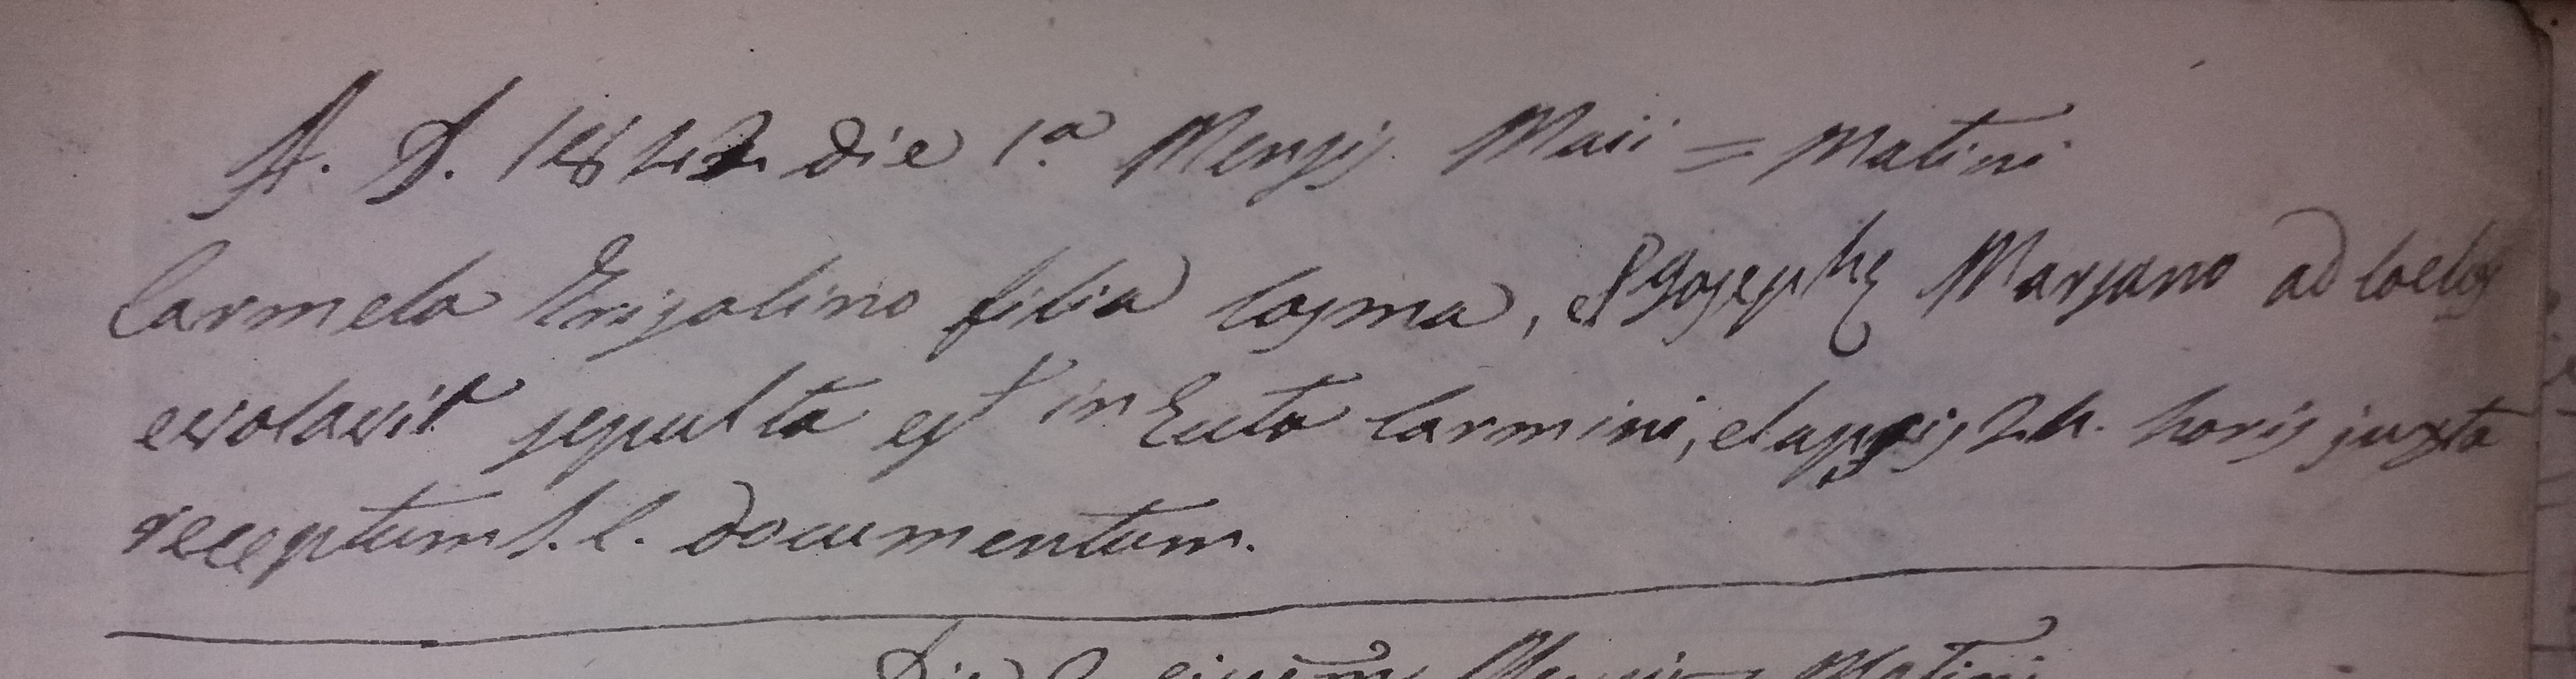 A. D. 1842 die 1.a Mensis Maii = Matini
Carmela Grisolino filia Cosma, et Josephæ Marsano ad Coelos
evolavit sepulta est in Eccta Carmini, elapsis 24. horis juxta
receptum S. C. documentum.
Die 2 ejusm Mensis Matini